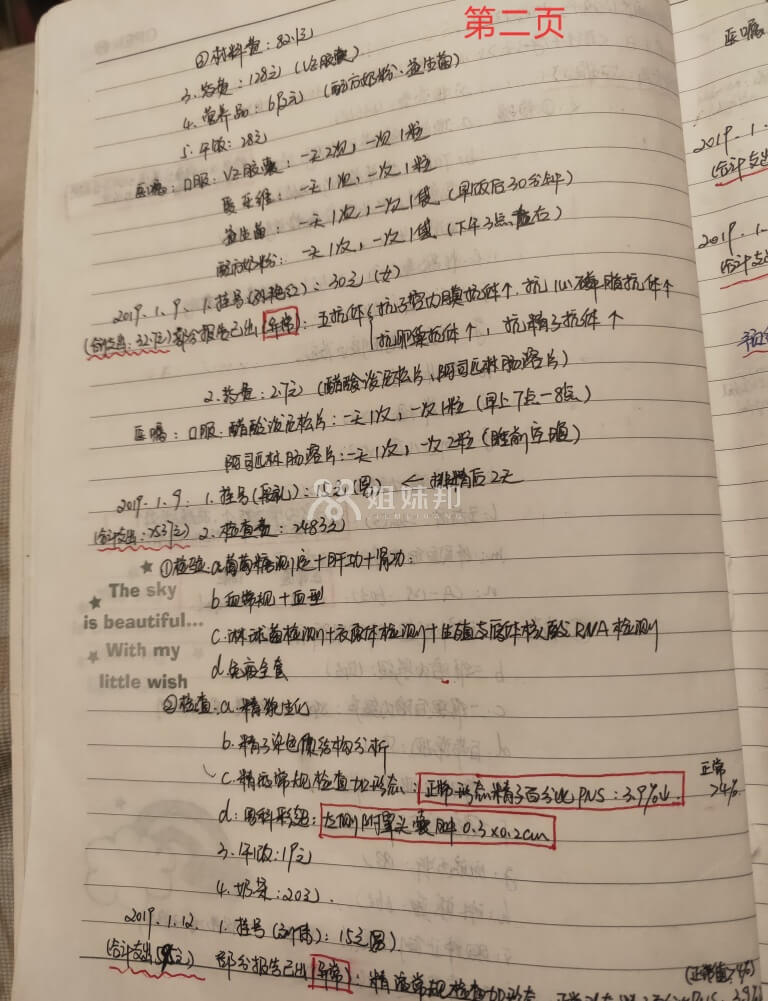 第二页
②材料费：82.1元
3.药费：128元（VE胶囊）
4.营养品：6元（配方奶粉、益生菌）
5.午饭：28元
医嘱：口服：VE胶囊：一天2次，一次1粒
爱乐维：一天1次，一次1粒
益生菌：一天1次，一次1袋（早饭后30分钟）
配方奶粉：一天1次，一次1袋（下午3点左右）
2019.1.9. 1.挂号：30元（女）
（合计支出：32.7元）部分报告已出（异常）：五抗体（抗子宫内膜抗体↑，抗心磷脂抗体↑
抗卵巢抗体↑，抗精子抗体↑
2.药费：2.7元（醋酸泼尼松片、阿司匹林肠溶片）
医嘱：口服：醋酸泼尼松片：一天1次，一次1粒（早上7点-8点）
阿司匹林肠溶片：一天1次，一次2粒（睡前空腹）
2019.1.9. 1.挂号：15元（男）← 排精后2天
（合计支出：2537元）2.检查费：2483元
姐妹邦
JIEMEIBANG
①检验：a.葡萄糖测定+肝功+肾功：
b.血常规+血型
c.淋球菌检测+衣原体检测+生殖支原体核酸RNA检测
d.免疫全套
The sky
is beautiful...
With my
little wish
②检查：a.精浆生化
b.精子染色质结构分析
c.精液常规检查加形态：正常形态精子百分比PNS：3.9%↓
正常
≥4%
d.男科彩超：左侧附睾头囊肿0.3×0.2cm
3.午饭：19元
4.奶茶：20元.
2019.1.12. 1.挂号：15元（男）
（合计支出元）部分报告已出（异常）：精液常规检查加形态
（正常值≥4%）
医嘱
2019.1.
（合计支
2019.1.
（合计支